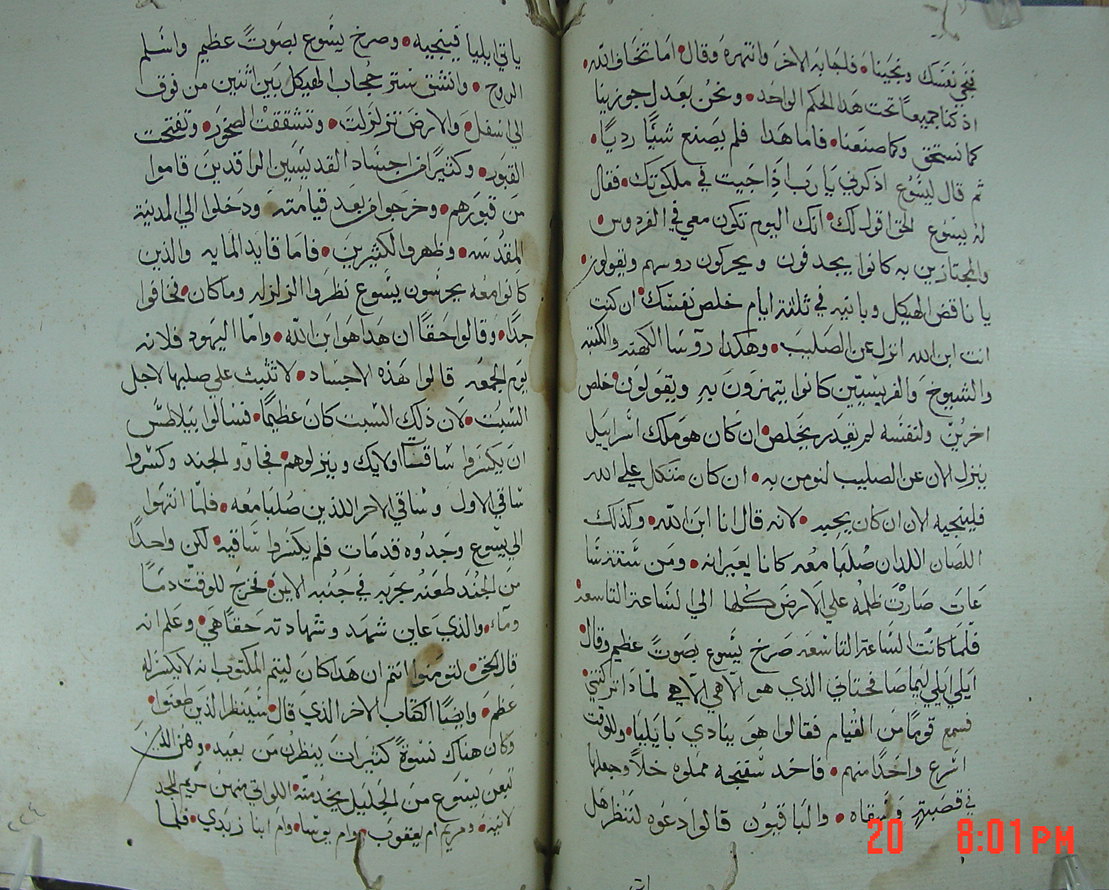 فنجي نفسك ونجينا • فاجابه الاخر وانتهره وقال • اما تخاف الله •
اذ كنا جميعاً تحت هذا الحكم الواحد • ونحن بعدل جوزينا
كما نستحق وكما صنعنا • فاما هذا فلم يصنع شيئاً ردياً •
ثم قال ليسوع اذكرني يا رب اذا جيت في ملكوتك • فقال
له يسوع الحق اقول لك • انك اليوم تكون معي في الفردوس •
والمجتازين به كانوا يجدفون ويحركون روسهم ويقولون •
يا ناقض الهيكل وبانيه في ثلثة ايام خلص نفسك • ان كنت
انت ابن الله انزل عن الصليب • وهكذا روسا الكهنه والكتبه
والشيوخ والفريسيين كانوا يتهزون به ويقولون • خلص
اخرين ولنفسه لم يقدر يخلص • ان كان هو ملك اسراييل
ينزل الان عن الصليب لنومن به • ان كان متكل علي الله
فلينجيه الان ان كان يحبه • لانه قال انا ابن الله • وكذلك
اللصان اللذان صلبا معه كانا يعيرانه • ومن ستة سا
عات صارت ظلمه علي الارض كلها الي الساعة التاسعه
فلما كانت الساعة التاسعه صرخ يسوع بصوت عظيم وقال •
ايلي ايلي لما صافحتاني الذي هو الاهي الاهي لماذا تركتني •
فسمع قوماً من القيام فقالوا هو ينادي بايليا • وللوقت
اسرع واحداً منهم • فاخد سفنجه مملوه خلاً وجعلها
في قصبة وسقاه • والباقيون قالوا دعوه لننظر هل
ياتي ايليا فينجيه • وصرخ يسوع بصوت عظيم واسلم
الروح • وانشق ستر حجاب الهيكل بين اثنين من فوق
الي اسفل • والارض تزلزلت • وتشققت الصخور • وتفتحت
القبور • وكثيراً من اجساد القديسين الراقدين قاموا
من قبورهم • وخرجوا من بعد قيامته ودخلوا الي المدينة
المقدسه • وظهروا لكثيرين • فاما قايد المايه والذين
كانوا معه يحرسون يسوع نظروا الزلزله وما كان • فخافوا
جداً • وقالوا حقاً ان هذا هو ابن الله • واما اليهود فلانه
يوم الجمعه قالوا هذه الاجساد • لا تثبت علي صلبها لاجل
السبت • لان ذلك السبت كان عظيماً • فسالوا بيلاطس
ان يكسروا ساقات اولايك وينزلوهم • فجاوو الجند وكسروا
ساقي الاول وساقي الاخر اللذين صلبا معه • فلما انتهوا
الي يسوع وجدوه قد مات فلم يكسروا ساقيه • لكن واحداً
من الجند طعنه بحربه في جنبه الايمن • فخرج للوقت دماً
وماء • والذي عاين شهد وشهادته حقاً هي • وعلم انه
قال الحق • لتومنوا انتم ان هذا كان ليتم المكتوب انه لا يكسر له
عظم • وايضاً الكتاب الاخر الذي قال • سينظر الذي طعنوا •
وكان هناك نسوة كثيرات ينظرن من بعيد • وهن الذين
تبعن يسوع من الجليل يخدمنه • اللواتي منهن مريم المجد
لانيه • ومريم ام يعقوب • وام يوسا • وام ابنا زبدي • فلما
20 8:01 PM